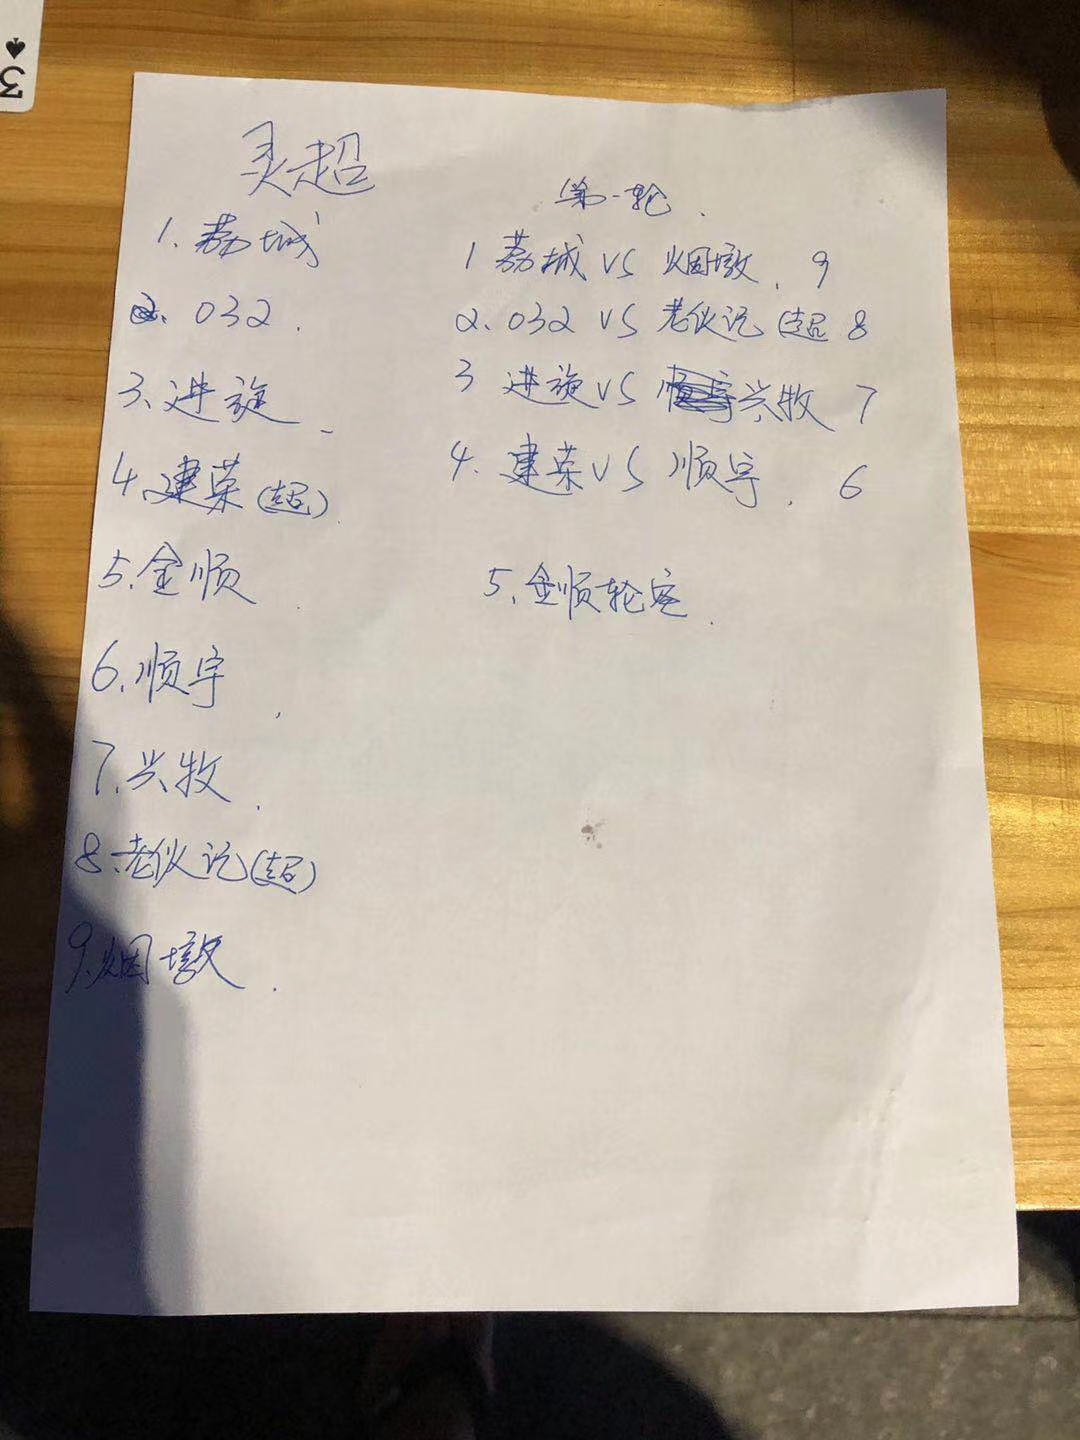 3
灵超
1、荔城
2、032
3、进旋
4、建荣(超)
5、金顺
6、顺宇
7、兴牧
8、老伙记(超)
9、烟墩
第一轮
1 荔城 VS 烟墩 9
2、032 VS 老伙记(超 8
3 进旋 VS 兴牧 7
4、建荣 VS 顺宇 6
5、金顺轮空